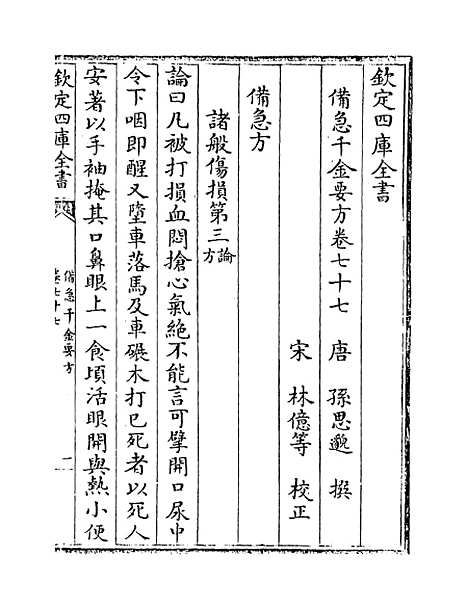 欽定四庫全書
備急千金要方卷七十七
唐 孫思邈 撰
宋 林億等 校正
備急方
諸般傷損第三論方
論曰凡被打損血悶搶心氣絶不能言可擘開口尿中
令下咽即醒又墮車落馬及車碾木打已死者以死人
安著以手袖掩其口鼻眼上一食頃活眼開與熱小便
欽定四庫全書
備急千金要方
卷七十七
一